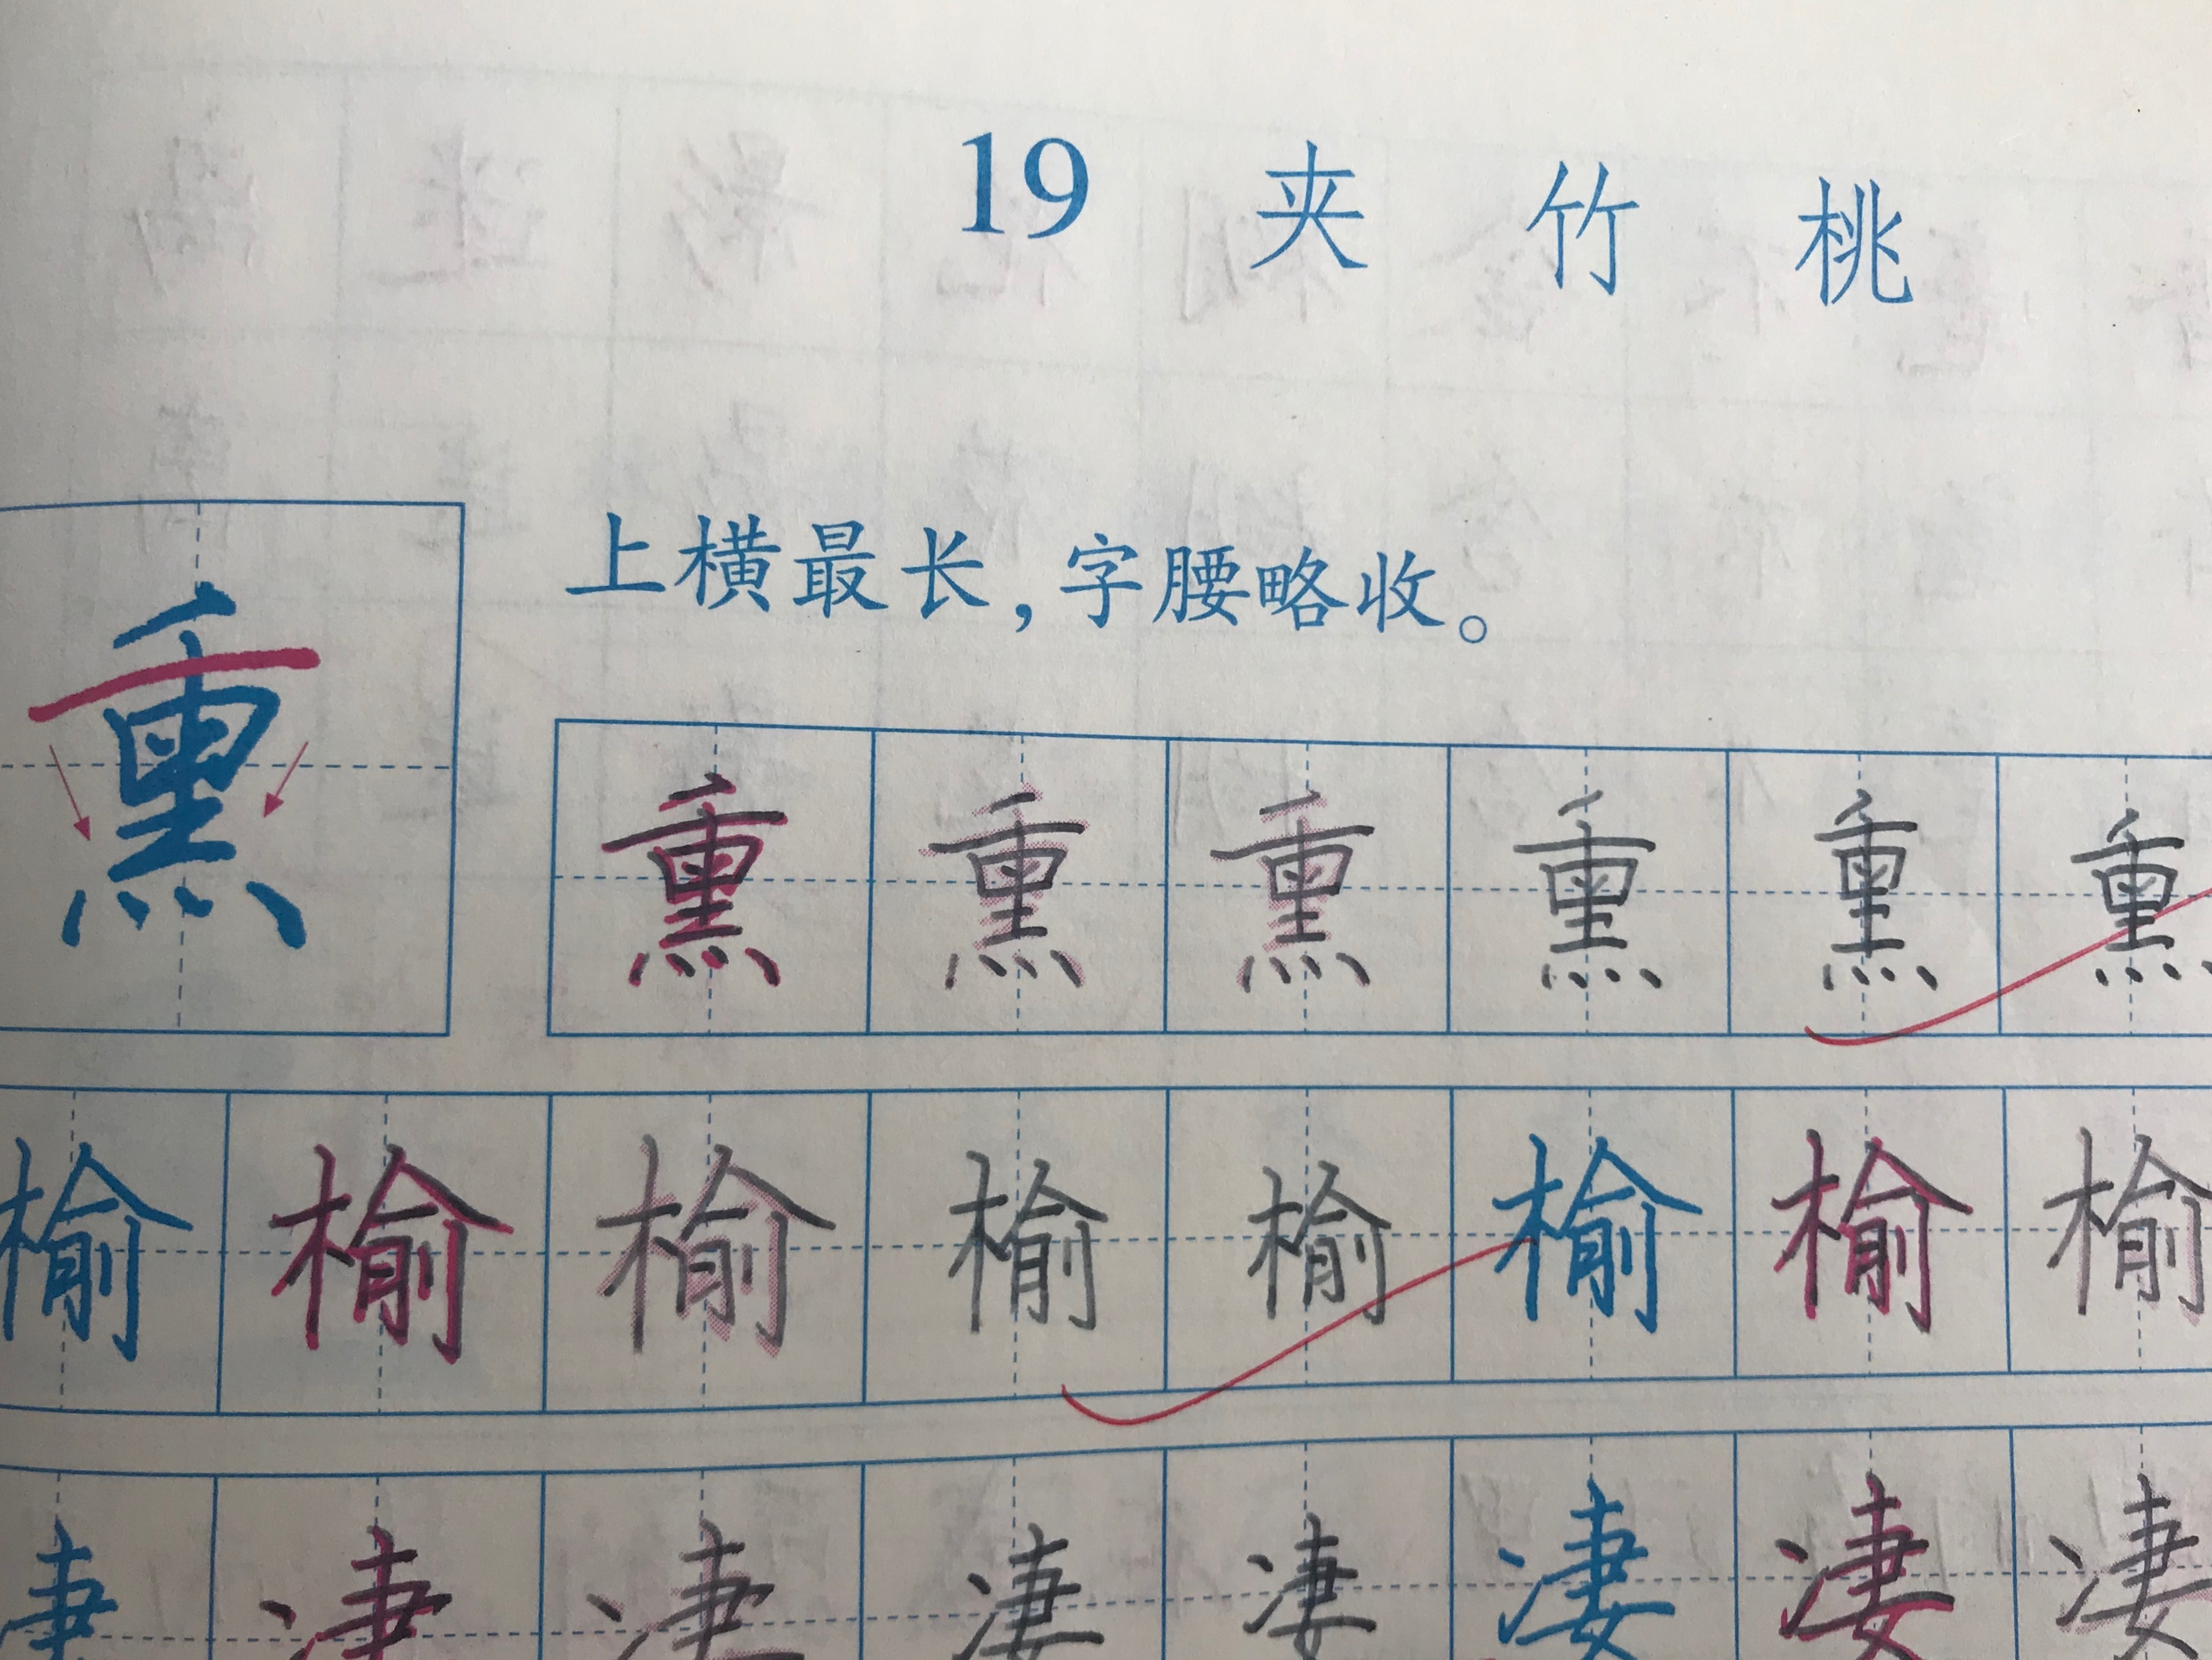 19 夹 竹 桃
上横最长,字腰略收。
熏 熏 熏 熏 熏 熏 熏
榆 榆 榆 榆 榆 榆 榆 榆
凄 凄 凄 凄 凄 凄 凄 凄